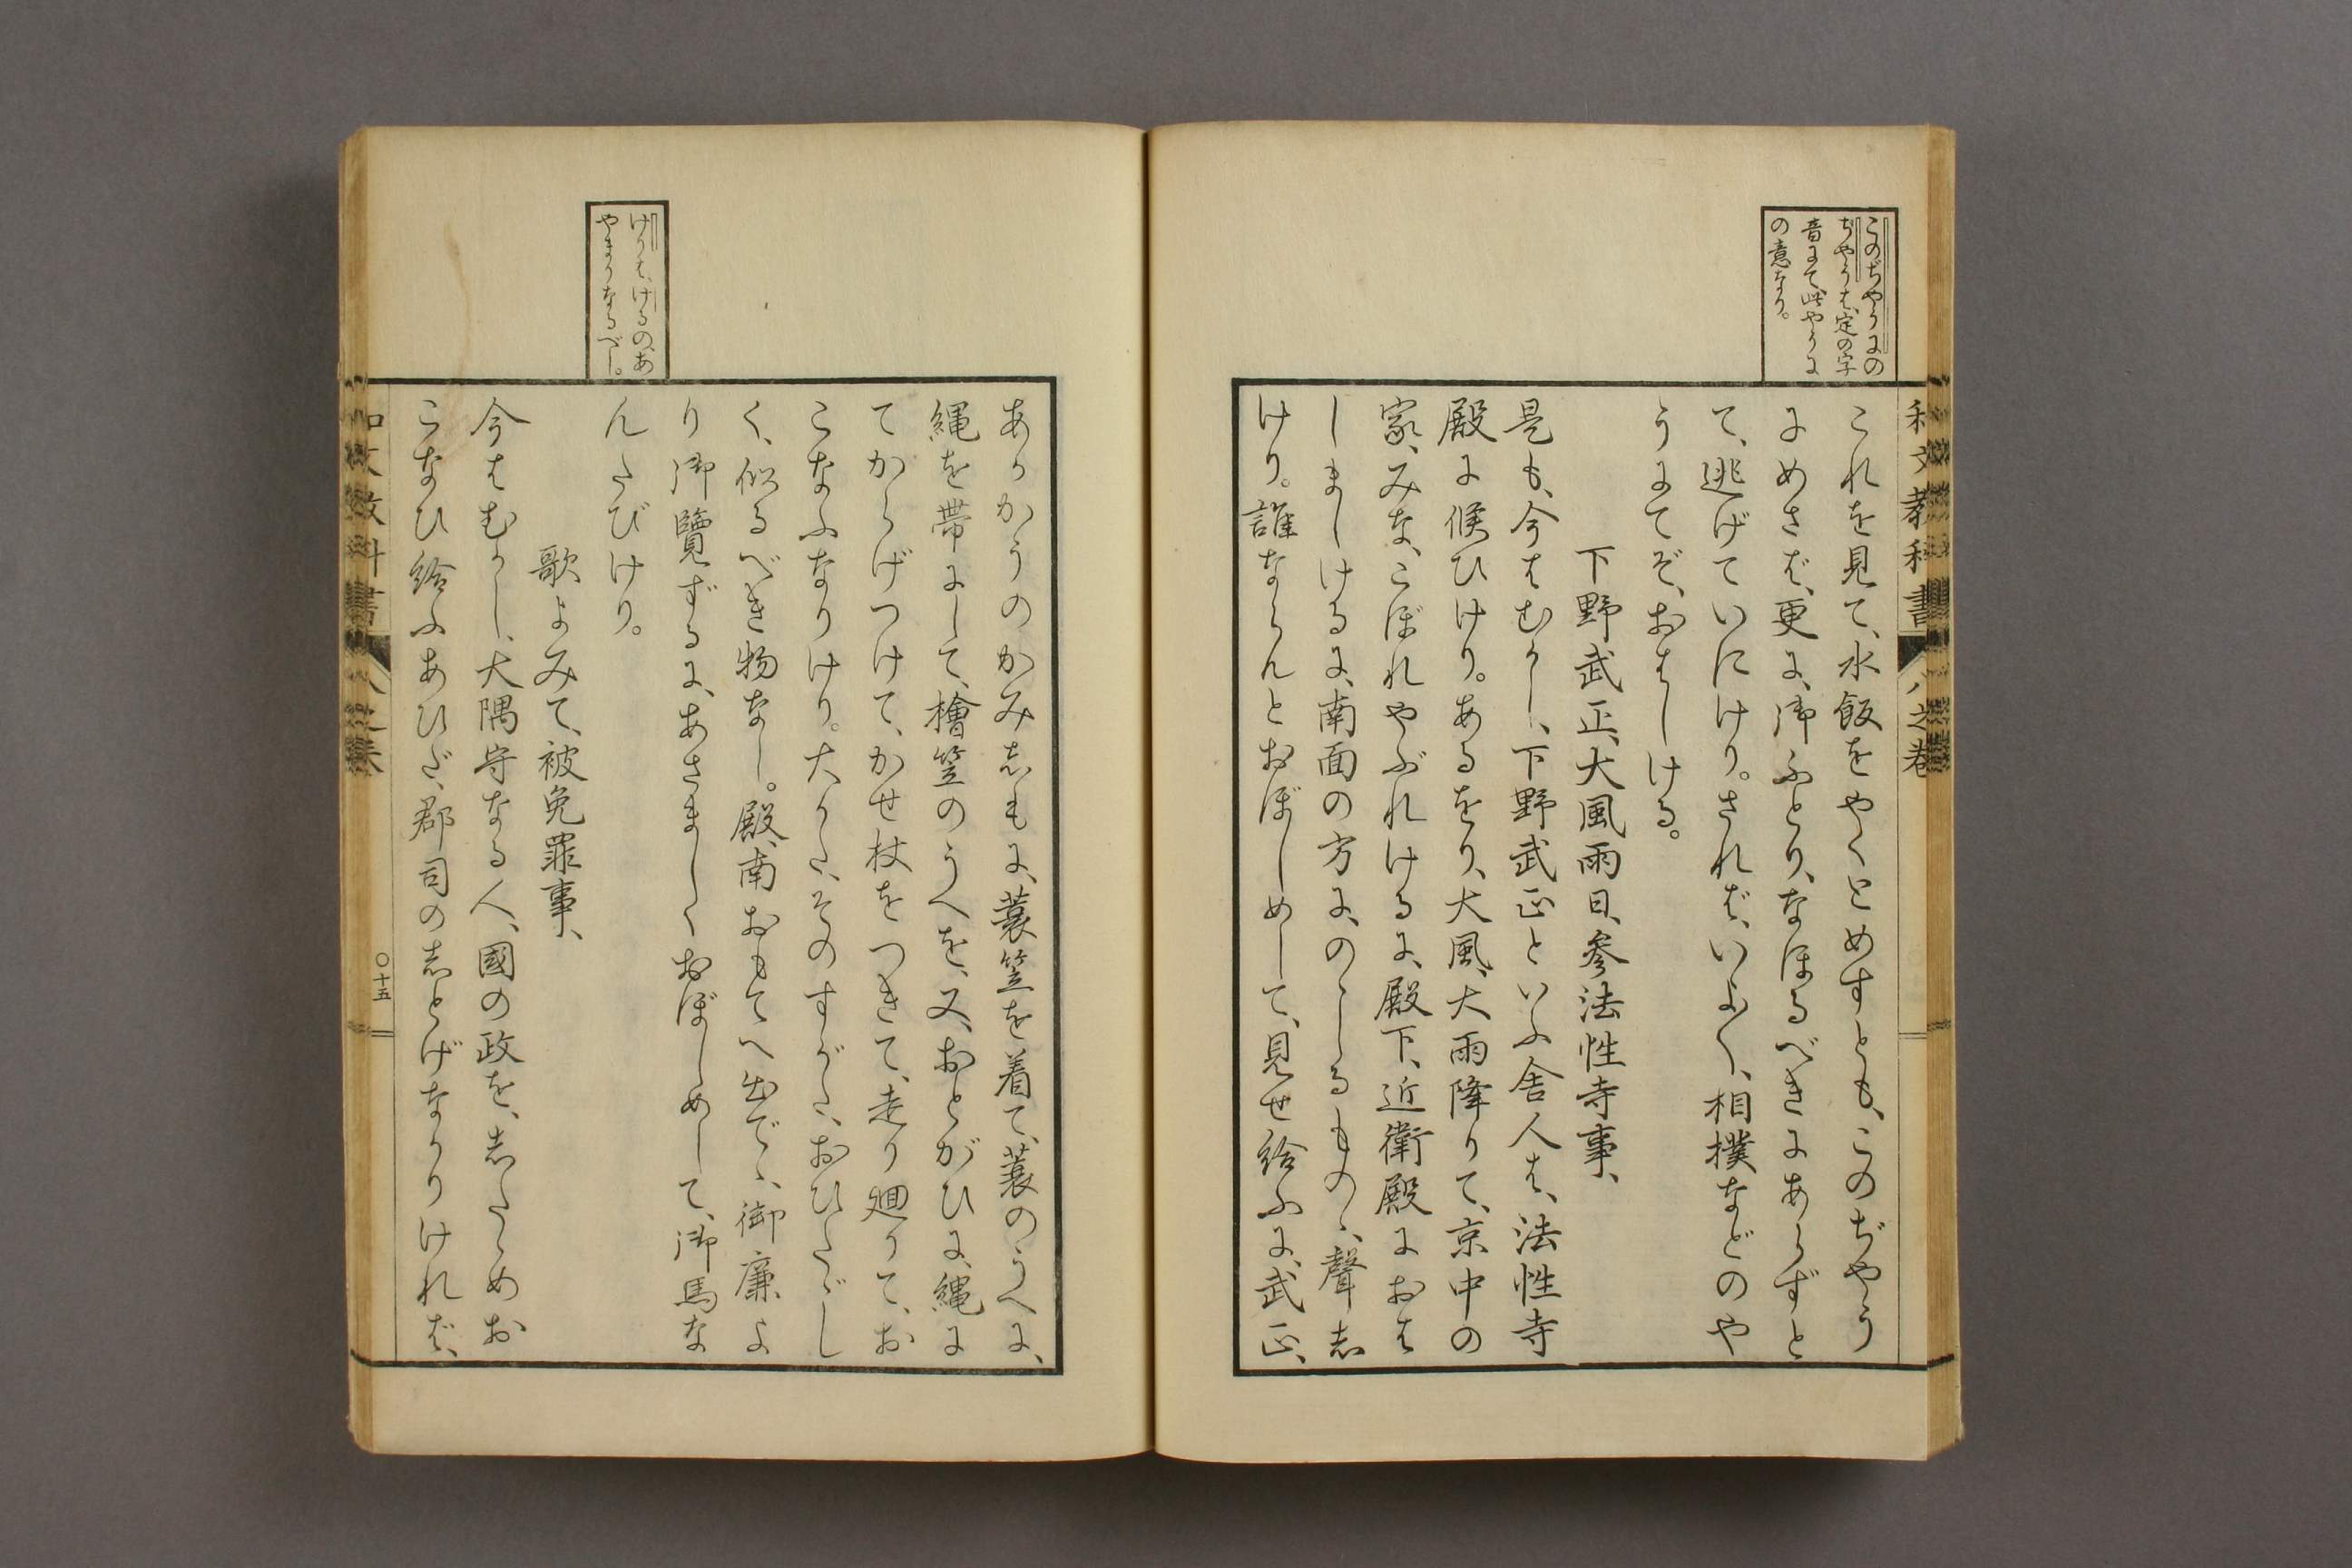 このぢやうにの
ぢやうは、定の字
音にて、此やうに
の意なり。
和文教科書 八之巻
これを見て、水飯をやくとめすとも、このぢやう
にめさば、更に、御ふとり、なほるべきにあらずと
て、逃げていにけり。されば、いよ〳〵、相撲などのや
うにてぞ、おはしける。
下野武正、大風雨日、参法性寺事、
是も、今はむかし、下野武正といふ舎人は、法性寺
殿に候ひけり。あるをり、大風、大雨降りて、京中の
家、みな、こぼれやぶれけるに、殿下、近衛殿におは
しましけるに、南面の方に、のゝしるものゝ聲志
けり。誰ならんとおぼしめして、見せ給ふに、武正、
けりは、けるの、あ
やまりなるべし。
あかかうのかみ志もに、蓑笠を着て、蓑のうへに、
縄を帯にして、檜笠のうへを、又、おとがひに、縄に
てからげつけて、かせ杖をつきて、走り廻りて、お
こなふなりけり。大かた、そのすがた、おひたゞし
く、似るべき物なし。殿、南おもてへ出でゝ、御廉よ
り御覽ずるに、あさましくおぼしめして、御馬な
んたびけり。
歌よみて、被免罪事、
今はむかし、大隅守なる人、國の政を、志たゝめお
こなひ給ふあひだ、郡司の志どげなかりければ、
和文教科書 八之巻
〇十五